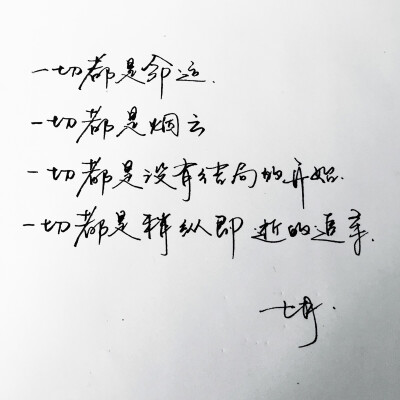 一切都是命运.
一切都是烟云
一切都是没有结局的开始.
一切都是稍纵即逝的追寻.